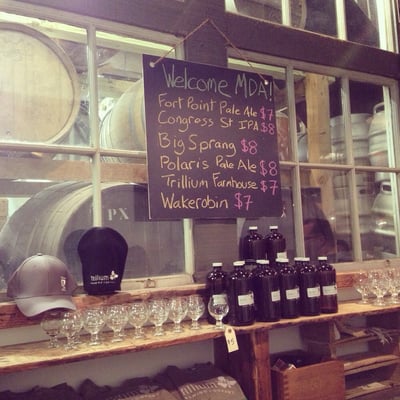 Welcome MDA!
Fort Point Pale Ale $7
Congress St IPA $8
Big Sprang $8
Polaris Pale Ale $8
Trillium Farmhouse $7
Wakerobin $7
PX
trillium